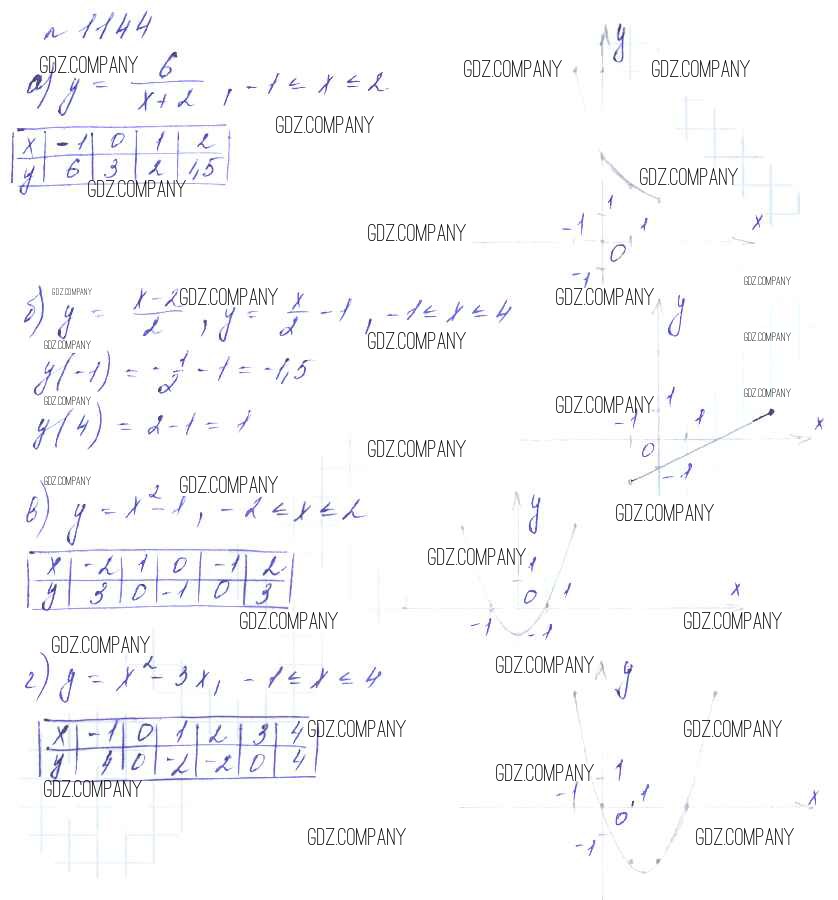 № 1144
GDZ.COMPANY
а) y = 6/(x+2), -1 ≤ x ≤ 2
GDZ.COMPANY
x | -1 | 0 | 1 | 2
y | 6 | 3 | 2 | 1,5
GDZ.COMPANY
GDZ.COMPANY
y
GDZ.COMPANY
GDZ.COMPANY
GDZ.COMPANY
1
-1 1 x
0
-1
GDZ.COMPANY
GDZ.COMPANY
б) y = (x-2)/2, y = x/2 - 1, -1 ≤ x ≤ 4
GDZ.COMPANY
GDZ.COMPANY
y(-1) = -1/2 - 1 = -1,5
GDZ.COMPANY
y(4) = 2-1 = 1
GDZ.COMPANY
GDZ.COMPANY
GDZ.COMPANY
y
GDZ.COMPANY
GDZ.COMPANY
GDZ.COMPANY
1
-1 1 x
0
-1
GDZ.COMPANY
GDZ.COMPANY
в) y = x²-1, -2 ≤ x ≤ 2
x | -2 | 1 | 0 | -1 | 2
y | 3 | 0 | -1 | 0 | 3
GDZ.COMPANY
y
GDZ.COMPANY
GDZ.COMPANY
1
0 1 x
-1 -1
GDZ.COMPANY
GDZ.COMPANY
г) y = x² - 3x, -1 ≤ x ≤ 4
x | -1 | 0 | 1 | 2 | 3 | 4
y | 4 | 0 | -2 | -2 | 0 | 4
GDZ.COMPANY
GDZ.COMPANY
GDZ.COMPANY
GDZ.COMPANY
y
GDZ.COMPANY
GDZ.COMPANY
1
-1 1 x
0
-1
GDZ.COMPANY